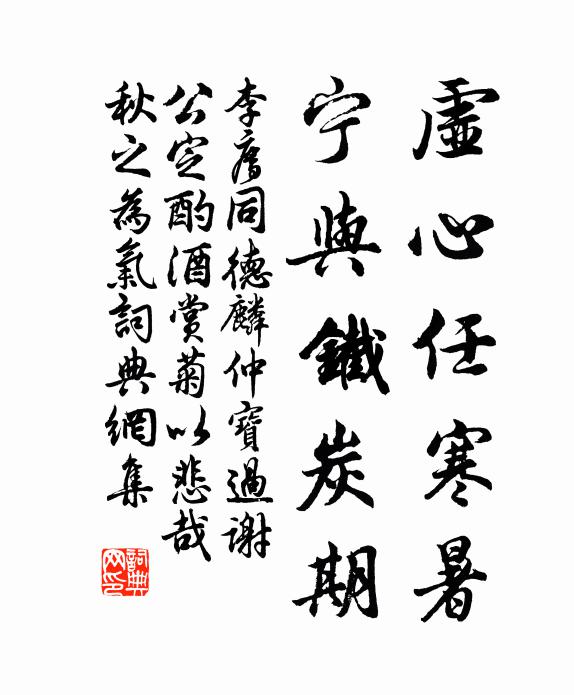 虛心任寒暑
宁與鐵炭期
李廌同德麟仲寶過謝
公定酌酒賞菊以悲哉
秋之為氣詞典網集
詞典网印